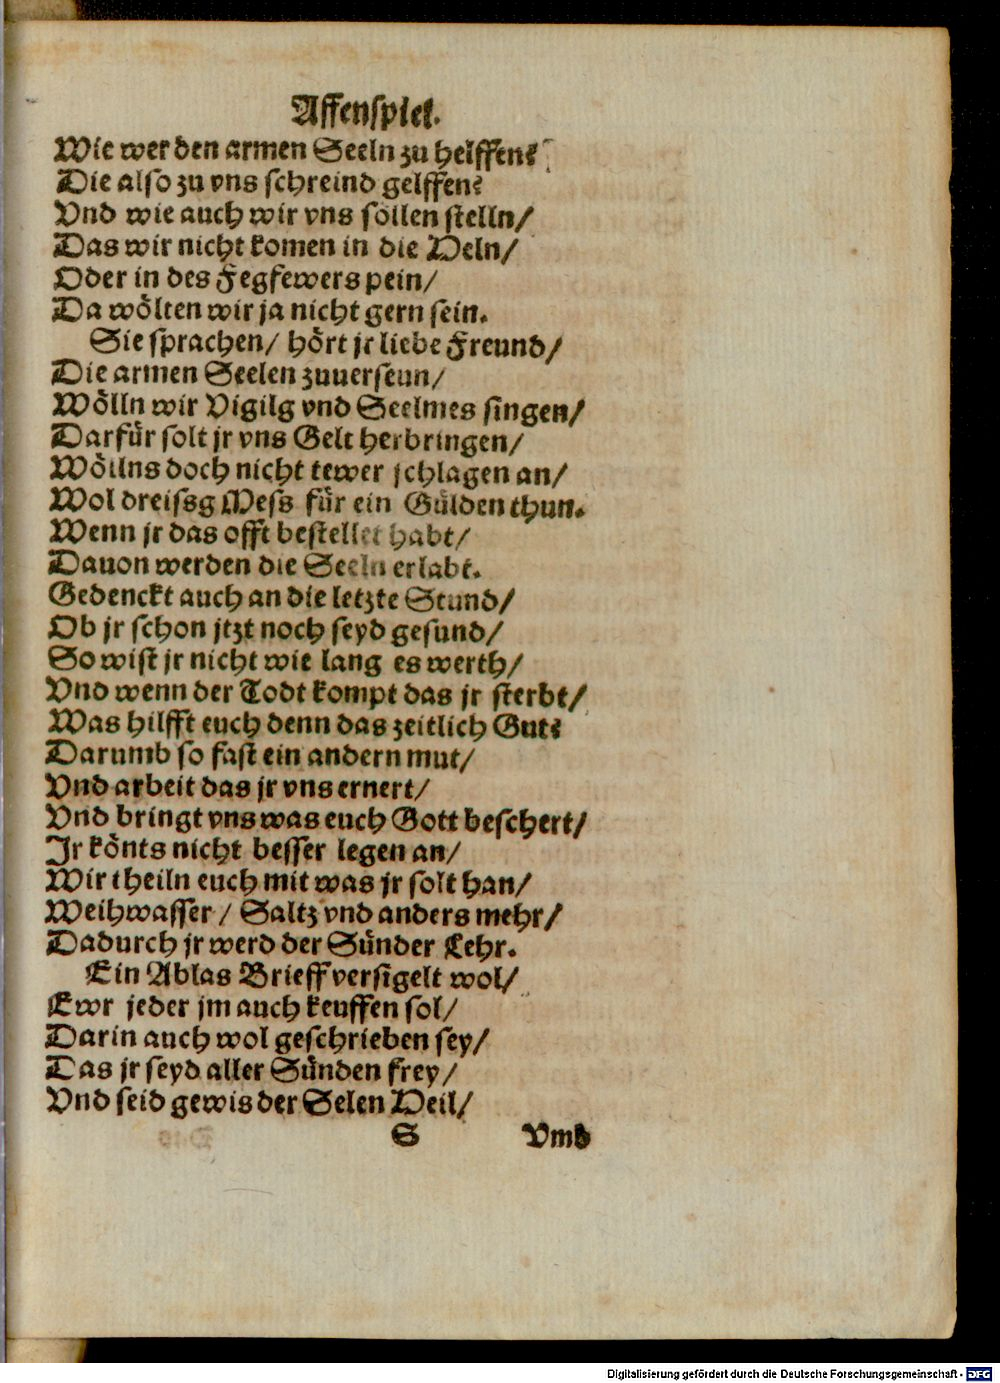 Affenspiel.
Wie wer den armen Seeln zu helffen?
Die also zu vns schreind gelffen?
Vnd wie auch wir vns sollen stelln/
Das wir nicht komen in die Heln/
Oder in des Fegfewers pein/
Da wölten wir ja nicht gern sein.
Sie sprachen/ hört jr liebe Freund/
Die armen Seelen zuuerseun/
Wölln wir Vigilg vnd Seelmes singen/
Darfür solt jr vns Gelt herbringen/
Wöllns doch nicht tewer schlagen an/
Wol dreissg Mess für ein Gülden thun.
Wenn jr das offt bestellet habt/
Dauon werden die Seeln erlabt.
Gedenckt auch an die letzte Stund/
Ob jr schon jtzt noch seyd gesund/
So wist jr nicht wie lang es werth/
Vnd wenn der Todt kompt das jr sterbt/
Was hilfft euch denn das zeitlich Gut?
Darumb so fast ein andern mut/
Vnd arbeit das jr vns ernert/
Vnd bringt vns was euch Gott beschert/
Jr könts nicht besser legen an/
Wir theiln euch mit was jr solt han/
Weihwasser/ Saltz vnd anders mehr/
Dadurch jr werd der Sünder Lehr.
Ein Ablas Brieff versigelt wol/
Ewr jeder jm auch keuffen sol/
Darin auch wol geschrieben sey/
Das jr seyd aller Sünden frey/
Vnd seid gewis der Selen Heil/
S Vmb
Digitalisierung gefördert durch die Deutsche Forschungsgemeinschaft - DFG